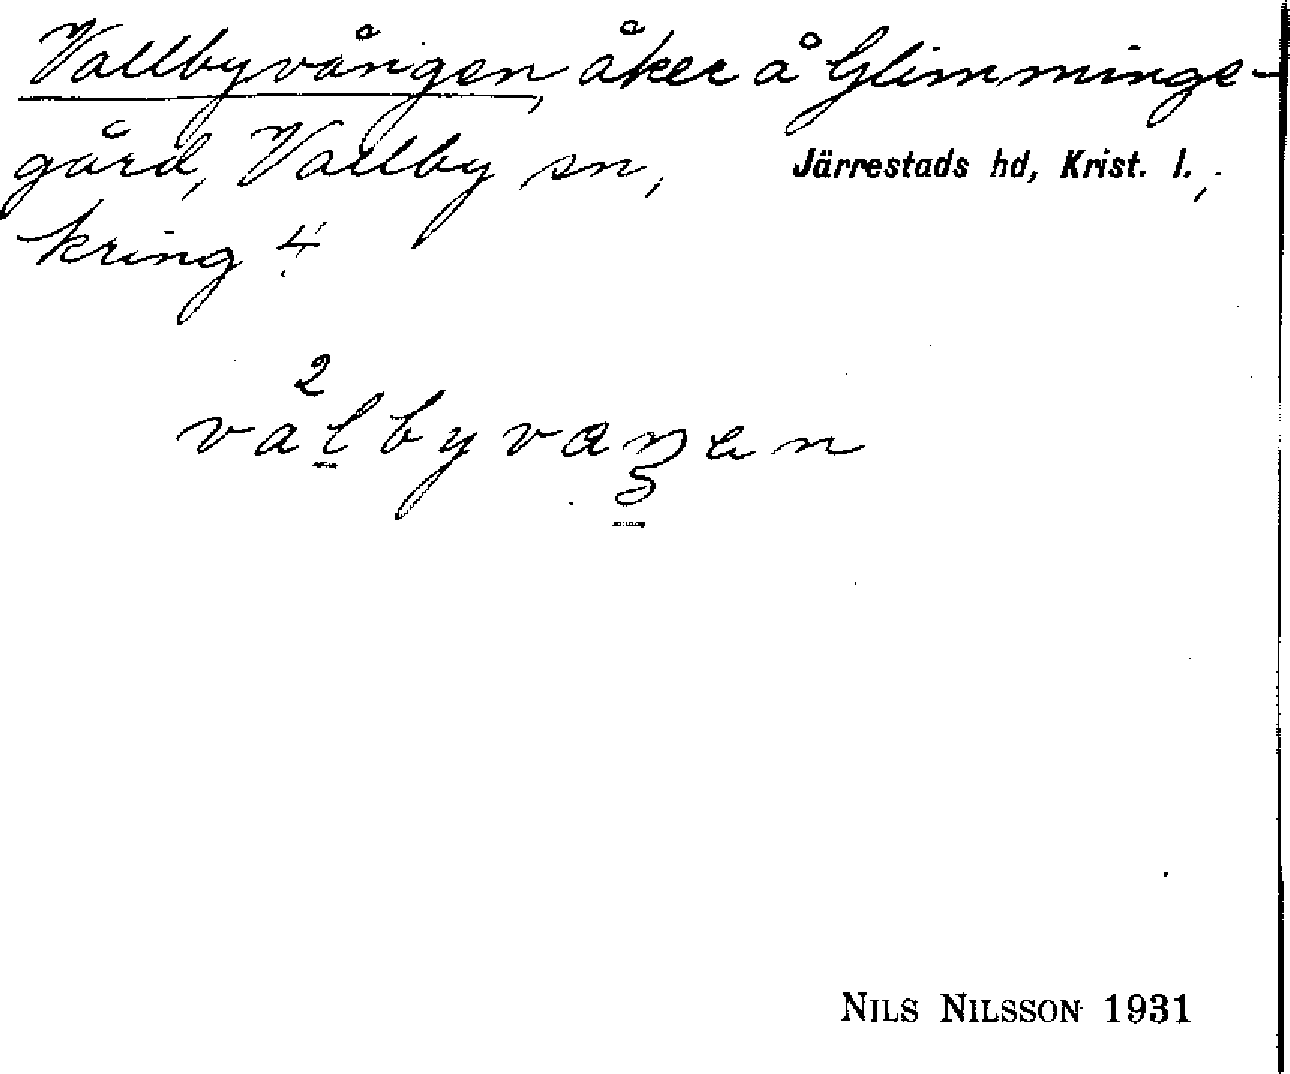 Vallbyvången, åker å Glimminge-
gård, Vallby sn, Järrestads hd, Krist. l.,
kring 4.
2
valbyvaŋen
NILS NILSSON 1931